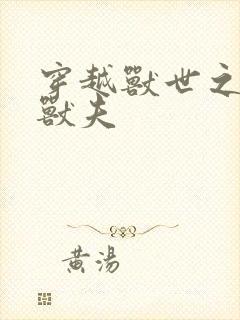 穿越獸世之
獸夫
黃湯